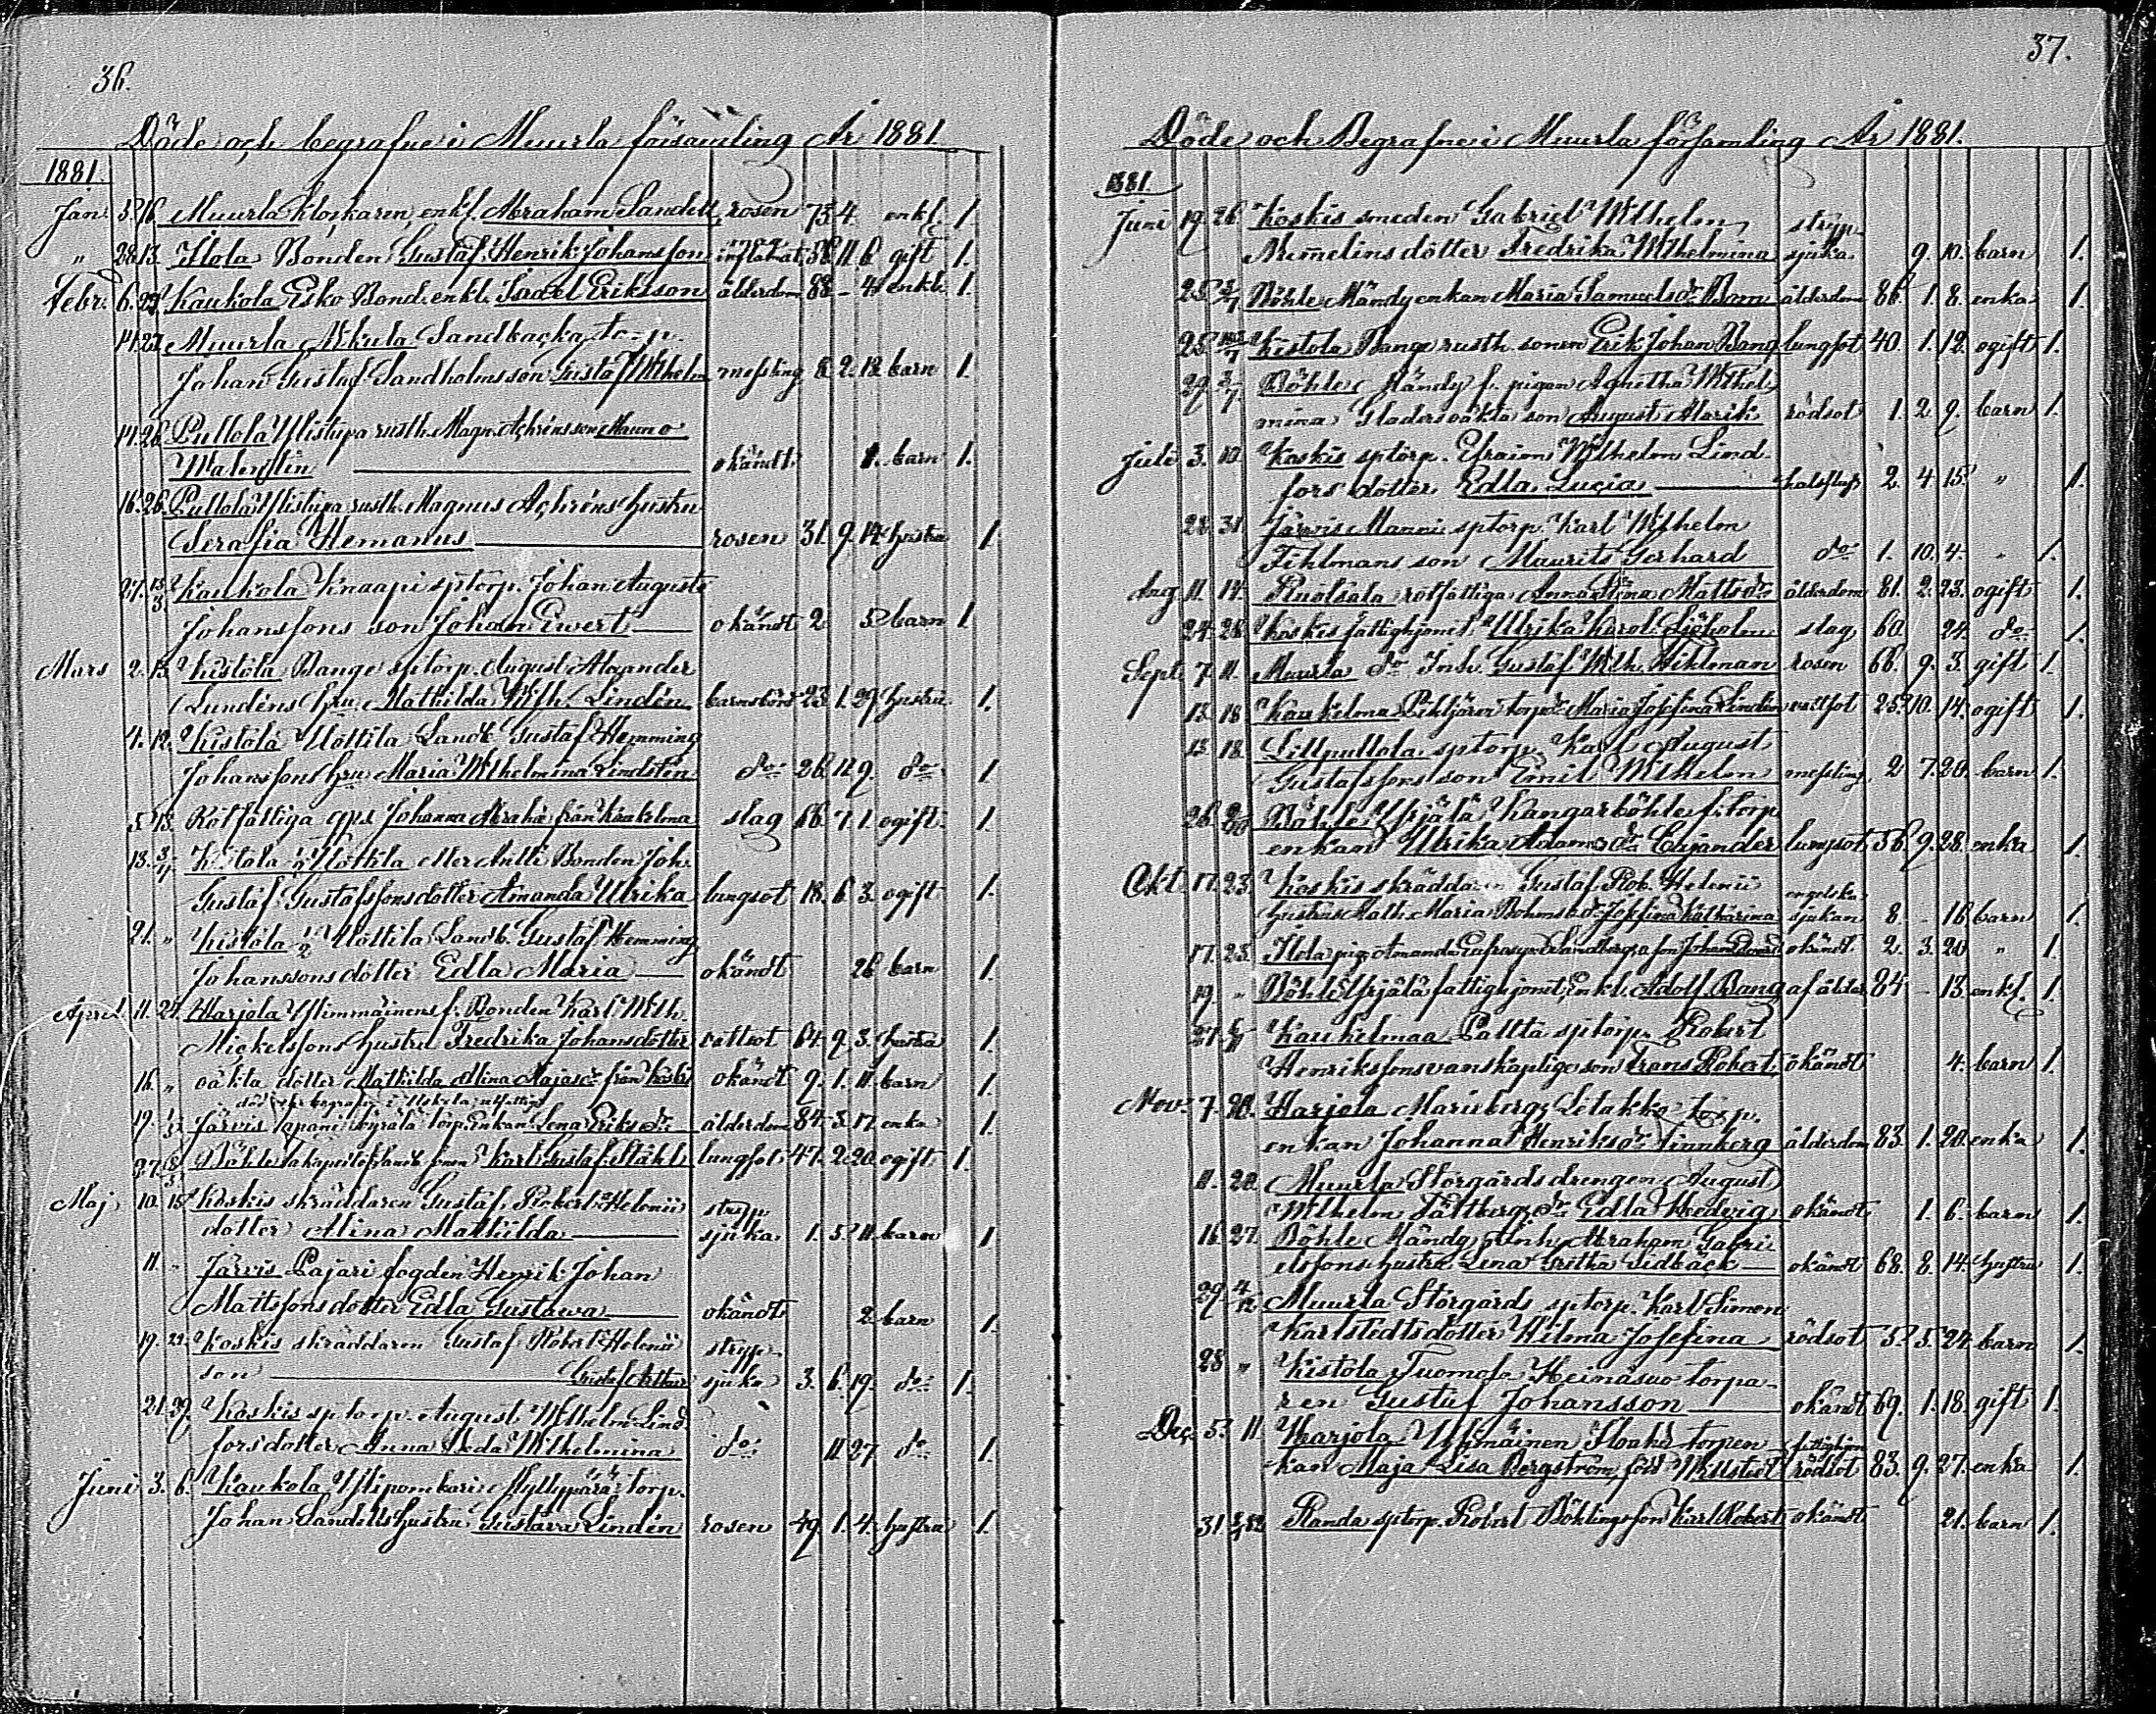 36.
Döde och begrafne i Muurla församling År 1881
1881.
Jan. 3. 16. Muurla klockaren, enkl. Abraham Sandell rosen 75 4 enkl. 1.
" 28. 13. Ilola Bonden Gustaf Henrik Johansson 38 11 6 gift 1.
Febr. 6. 27. Kaukola Esko Bond. enkl. Israel Eriksson ålderdom 88 - 4 enkl. 1.
14. 27. Muurla Sandbacka torp.
Johan Gustaf Sandholms son Gustaf Wilhelm messling 8. 2. 13. barn 1.
14. 26. Pullola Ylistupa rusth. Magn. son Mauno
okändt 1. barn 1.
16. 26. Pullola Ylistupa rusth. Magnus hustru
Serafia Hemanus rosen 31. 9. 14. hustru 1.
27. 13/3 Kaukola Knaapi sptorp. Johan August
Johanssons son Johan Ewert okändt 2 5 barn 1
Mars 2. 13. Kistola Bange sptorp. August Alexander
Lundens hru Mathilda Wilh. Lindén barnsbörd 23. 1. 29. hustru 1.
4. 12. Kistola Uottila Landb. Gustaf Hemming
Johanssons hru Maria Wilhelmina Lindsten do 26. 11. 9. do 1.
5. 13. Rotfattiga Johanna från Kaukelma slag 66. 7. 1. ogift 1.
13. 3/4 Kistola 1/2 Uottila eller Antti Bonden Joh.
Gustaf Gustafssons dotter Amanda Ulrika lungsot 18. 6. 3. ogift 1.
21. " Kistola 1/2 Uottila Landb. Gustaf Hemming
Johanssons dotter Edla Maria okändt 26 barn 1.
April 11. 24. Harjola Ylimmäinens f. Bonden Karl Wilh.
Mickelssons hustru Fredrika Johansdotter vattsot 64. 9. 3. hustru 1.
16. " oäkta dotter Mathilda från okändt 9. 1. 11. barn 1.
19. 1/5 Järvis Tapani torp. Enkan Lena Eriksdr ålderdom 84. 3. 17. enka 1.
27. 8/5 Böhle sonen Karl Gustaf Ståhl lungsot 47. 2. 20. ogift 1.
Maj 10. 15. Koskis skräddaren Gustaf Robert Helenii stryp
dotter Alina Mathilda sjuka 1. 5. 11. barn 1
11. " Järvis Pajari fogden Henrik Johan
Mattssons dotter Edla Gustawa okändt 2 barn 1.
19. 22. Koskis skräddaren Gustaf Robert Helenii stryp
son Gustaf Arthur sjuka 3. 6. 19. do 1.
21. 29. Koskis sptorp. August Wilhelm Lind
fors dotter Anna Leda Wilhelmina do 11 27 do 1.
Juni 3. 6. Kaukola Ylipomkari Myllyperä torp.
Johan Sandells hustru Gustava Lindén rosen 49. 1. 4. hustru 1.
37.
Döde och Begrafne i Muurla församling År 1881.
1881.
Juni 19. 26 Koskis smeden Gabriel Wilhelm stryp
Numelins dotter Fredrika Wilhelmina sjuka 9. 10. barn 1.
25. 3/7 Böhle Mändy enkan Maria Samuelsdr Bom ålderdom 86. 1. 8. enka 1.
25. Kistola Bange rusth. sonen Erik Johan Bang lungsot 40. 1. 12. ogift 1.
29. 3/7 Böhle Mändy f. pigan Agnetha Wilhel
mina oäkta son August Alarik rödsot 1. 2. 9. barn 1.
Juli 3. 10. Koskis sptorp. Efraim Wilhelm Lind
fors dotter Edla Lucia halsfluss 2. 4. 15. " 1.
28. 31 Järvis Manni sptorp. Karl Wilhelm
Fihlmans son Maurits Gerhard do 1. 10. 4. " 1.
Aug. 11. 14. Ruotsala rotfattiga Anna Stina Mattsdr ålderdom 81. 2. 23. ogift 1.
24. 28. Koskis fattighjonet Ulrika Karol. Sjöholm slag 60. 24. do 1.
Sept. 7. 11. Muurla do Inh. Gustaf Wilh. Wihlman rosen 66. 9. 3. gift 1.
13. 18 Kaukelma Pihtjärvi torp. dr Maria Josefina Lindén vattsot 25. 10. 14. ogift 1.
13. 18. Lillpullola sptorp. Karl August
Gustafssons son Emil Wilhelm messling 2 7. 20. barn 1.
26. 2/10 Böhle Yrjälä Kangarböhle f. torp
enkan Ulrika Adamsdr Cajander lungsot 56. 9. 28. enka 1.
Okt. 17. 23. Koskis skräddaren Gustaf Rob. Helenii engelska
hustrus Math. Maria Bohms dr Josefina Katharina sjukan 8. - 16 barn 1.
17. 23. Ilola pig. Amanda Sandbergs oa son Johan Edvard okändt 2. 3. 20 " 1.
19. " Böhle Yrjälä fattighjonet, Enkl. Adolf Bang af ålder 84 - 13. enkl. 1.
27. 6/11 Kaukelmaa Paltta sptorp. Robert
Henrikssons vanskaplige son Frans Robert okändt 4. barn 1.
Nov. 7. 20. Harjola Marieberg Letakko torp.
enkan Johanna Henriksdr Finnberg ålderdom 83. 1. 20. enka 1.
11. 20. Muurla Storgårds drengen August
Wilhelm Fältbergs dr Edla Hedvig okändt 1. 6. barn 1.
16. 27. Böhle Mändy Inh. Abraham Gabri
elssons hustru Lena Gretha Lidbäck okändt 68. 8. 14. hustru 1.
29. 4/12 Muurla Storgårds sptorp. Karl Simon
Karlstedts dotter Hilma Josefina rödsot 5. 5. 24. barn 1.
28 " Kistola Tuomola Heinäsuo torpa-
ren Gustaf Johansson okändt 69. 1. 18. gift 1.
Dec. 5. 11. Harjola Ylimäinen torpen fattighjon
kan Maja Lisa Bergström född Willstedt rödsot 83. 9. 27. enka 1.
31. Randa sptorp. Robert Böhlings son Karl Robert okändt 21. barn 1.